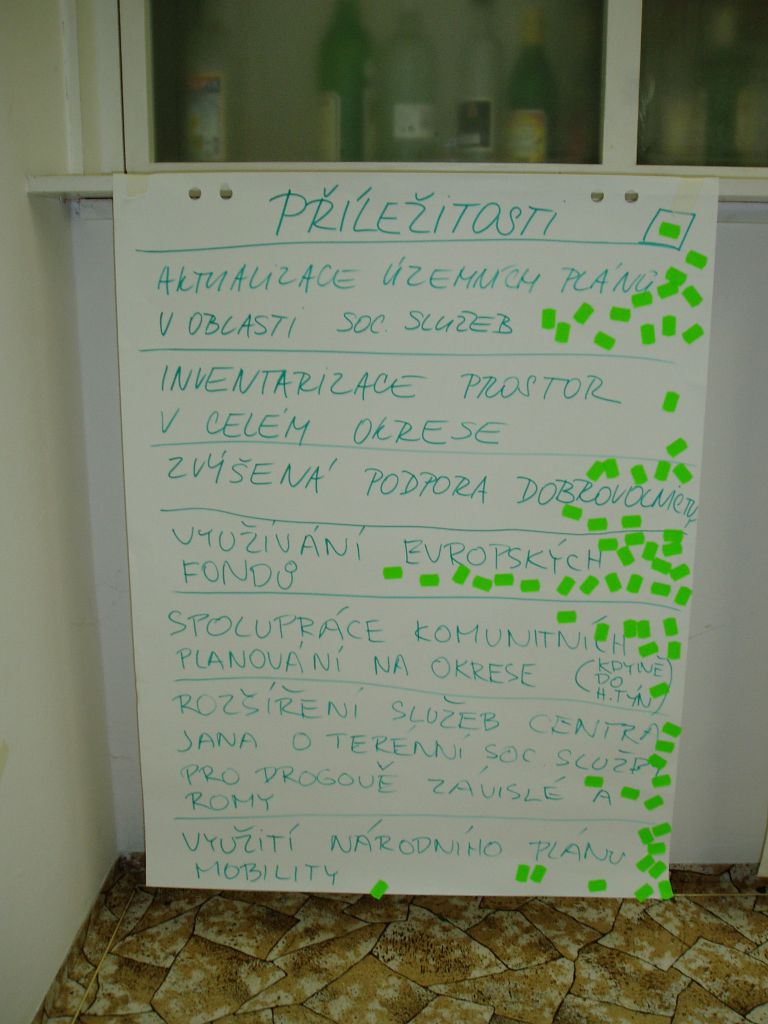 PŘÍLEŽITOSTI
AKTUALIZACE ÚZEMNÍCH PLÁNŮ
V OBLASTI SOC. SLUŽEB
INVENTARIZACE PROSTOR
V CELÉM OKRESE
ZVÝŠENÁ PODPORA DOBROVOLNICTV
VYUŽÍVÁNÍ EVROPSKÝCH
FONDŮ
SPOLUPRÁCE KOMUNITNÍCH
PLANOVÁNÍ NA OKRESE (KDYNĚ
DO
H. TÝN)
ROZŠÍŘENÍ SLUŽEB CENTRA
JANA O TERÉNNÍ SOC. SLUŽBY
PRO DROGOVĚ ZÁVISLÉ A
ROMY
VYUŽITÍ NÁRODNÍHO PLÁNU
MOBILITY